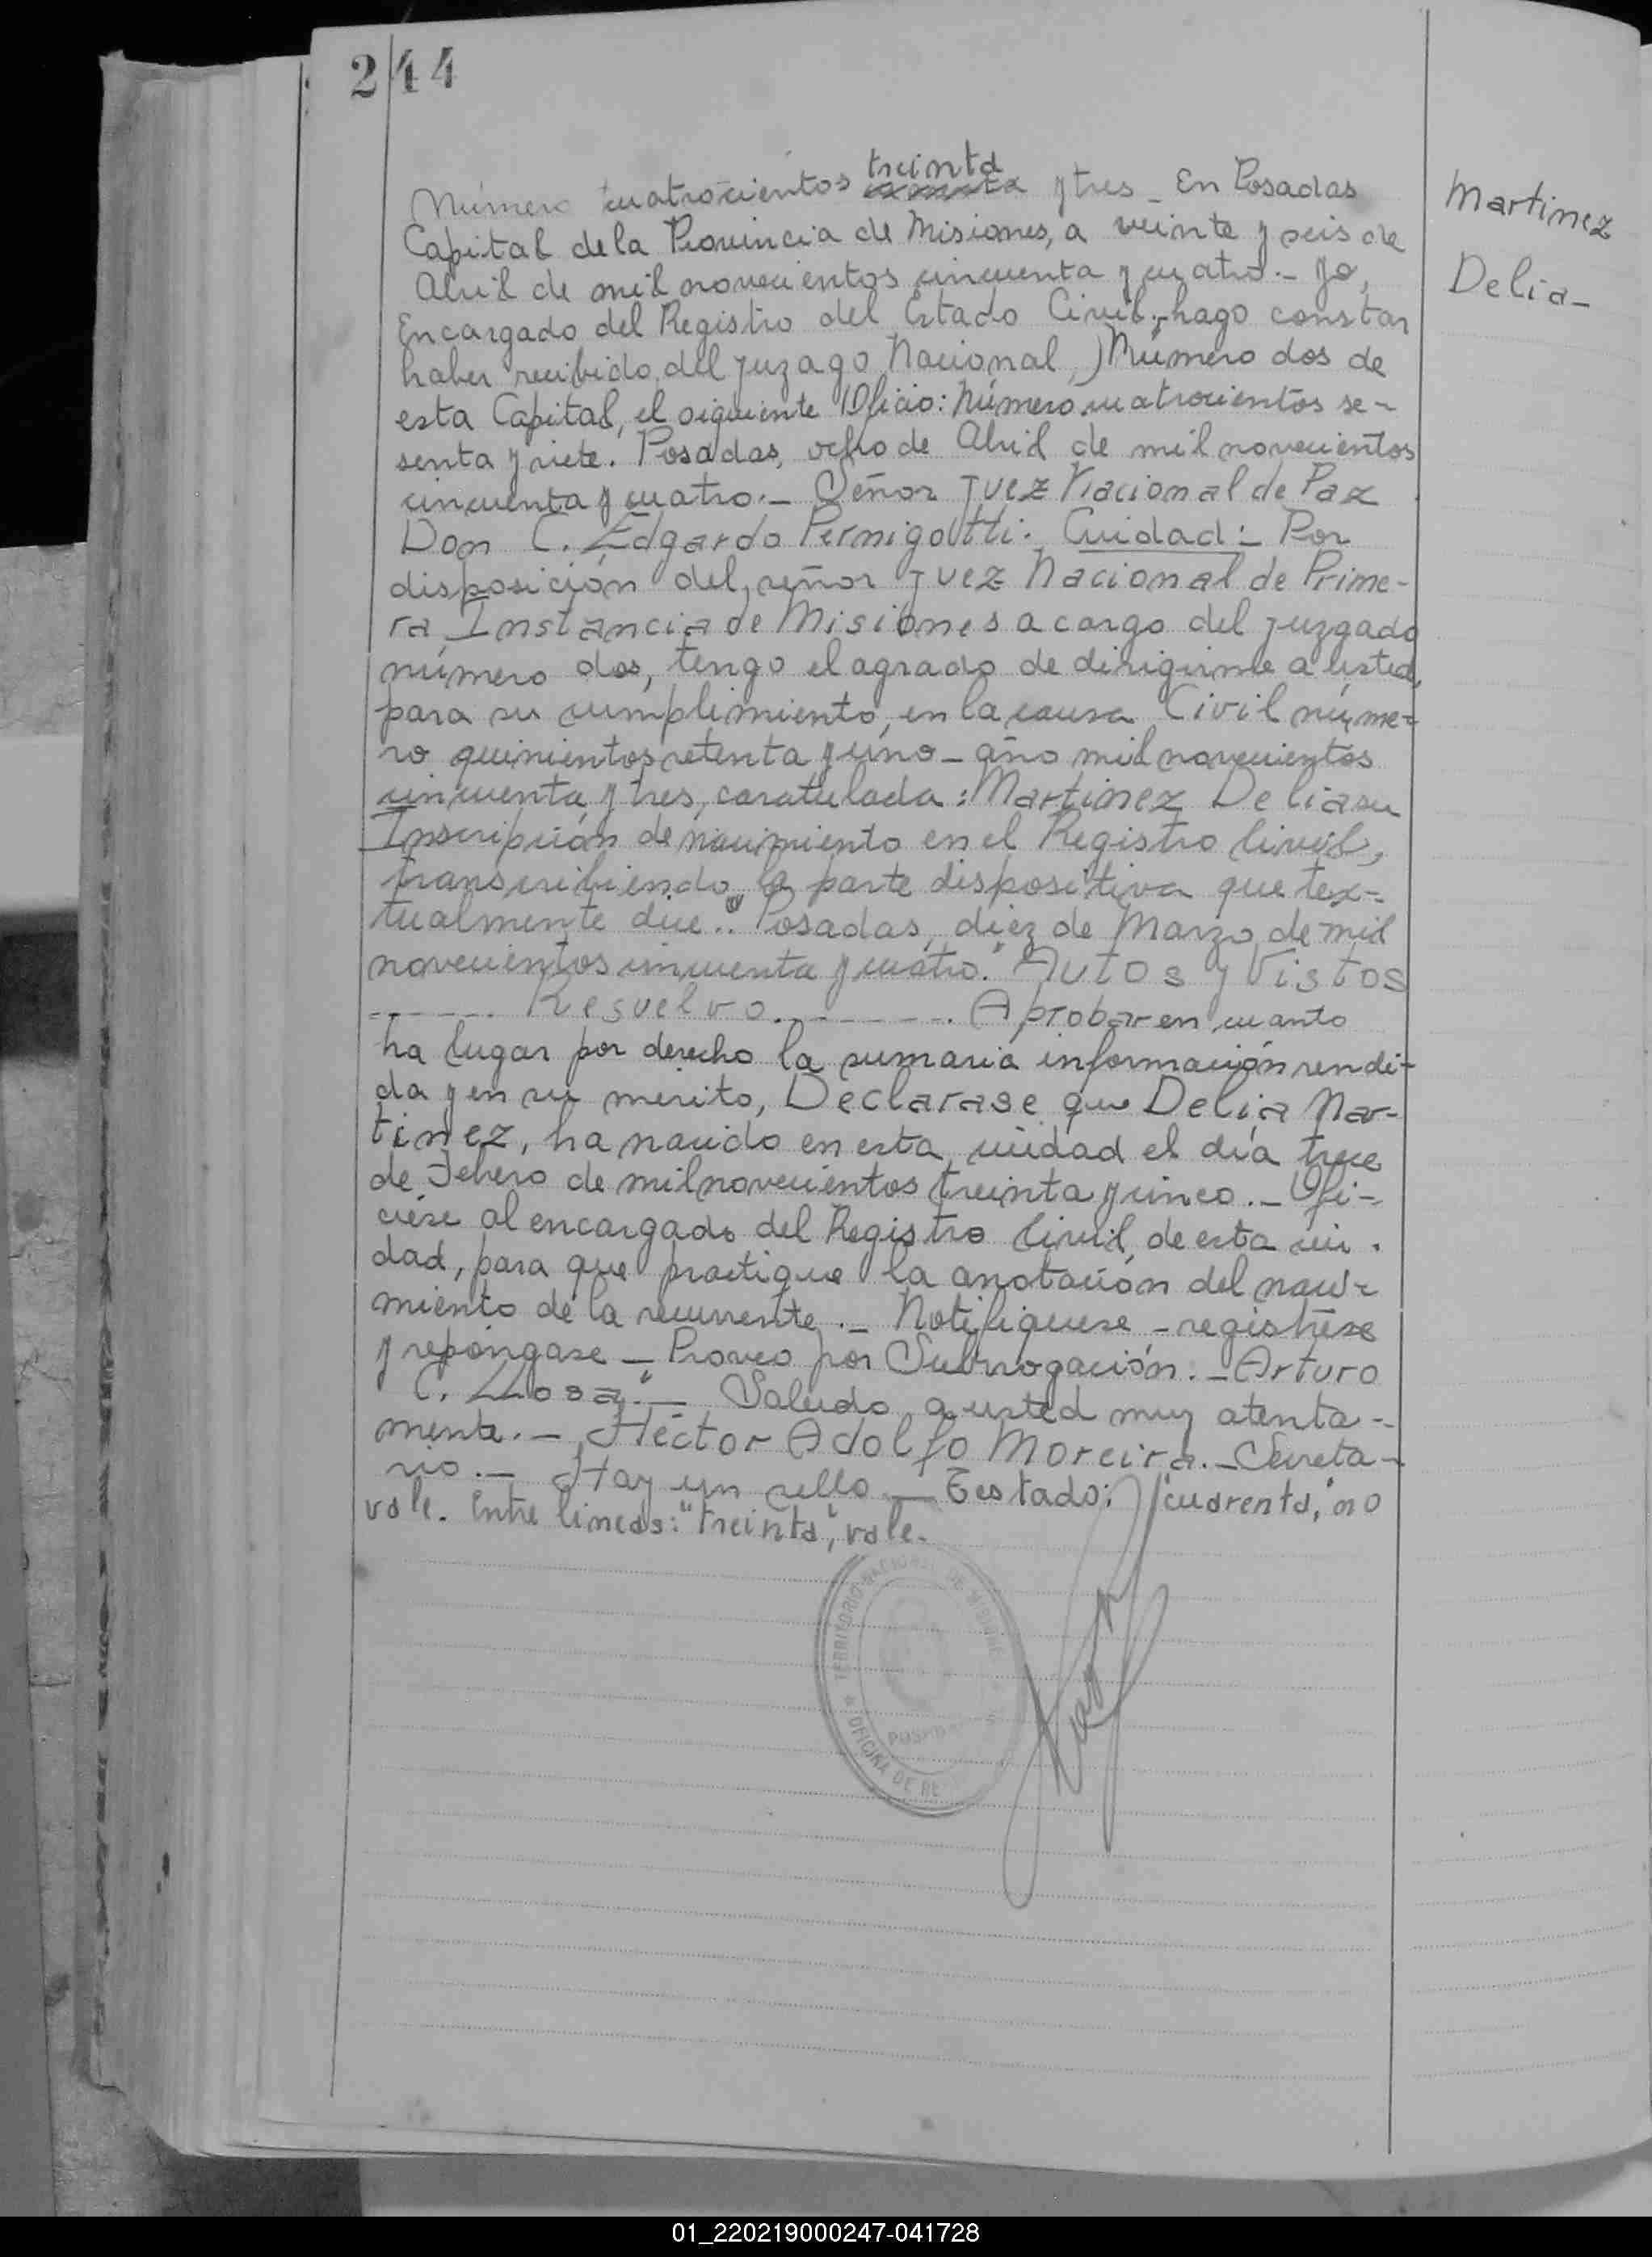 244
Martinez
Delia-
treinta
Número cuatrocientos cuarenta y tres_ En Posadas
Capital de la Provincia de Misiones, a veinte y seis de
Abril de mil novecientos cincuenta y cuatro.- Yo,
Encargado del Registro del Estado Civil, hago constar
haber recibido del juzago Nacional, Número dos de
esta Capital, el siguiente Oficio: Número cuatrocientos se-
senta y siete. Posadas, ocho de Abril de mil novecientos
cincuenta y cuatro.- Señor Juez Nacional de Paz
Don C. Edgardo Pernigotti. Cuidad:- Por
disposición del señor Juez Nacional de Prime-
ra Instancia de Misiones a cargo del juzgado
número dos, tengo el agrado de dirigirme a usted,
para su cumplimiento, en la causa Civil núme-
ro quinientos setenta y uno - año mil novecientos
cincuenta y tres, caratulada: Martinez Delia su
Inscripción de nacimiento en el Registro Civil,
transcribiendo la parte dispositiva que tex-
tualmente dice.." Posadas, diez de Marzo de mil
novecientos cincuenta y cuatro." Autos y Vistos
------. Resuelvo.-------. Aprobar en cuanto
ha lugar por derecho la sumaria información rendi-
da y en su merito, Declarase que Delia Mar-
tinez, ha nacido en esta ciudad el día trece
de Febero de mil novecientos treinta y cinco.- Ofi-
ciese al encargado del Registro Civil, de esta ciu.
dad, para que practique la anotación del naci-
miento de la recurrente.- Notifiquese - registrese
y repóngase - Proveo por Subrrogación.- Arturo
C. Llosa".- Saludo a usted muy atenta-
mente.- Héctor Adolfo Moreira.- Secreta-
rio.- Hay un sello - Testado: "cuarenta", no
vale. Entre lineas: "treinta", vale.
TERRITORIO NACIONAL DE MISIONES
POSADAS
OFICINA DE RE
01_220219000247-041728